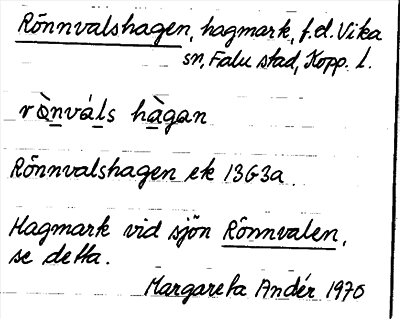 Rönnvalshagen, hagmark, f.d. Vika
sn, Falu stad, Kopp. l.
rò̱nvá̱ḻs hà̱gan
Rönnvalshagen ek 13G3a
Hagmark vid sjön Rönnvalen,
se detta.
Margareta Andér 1970